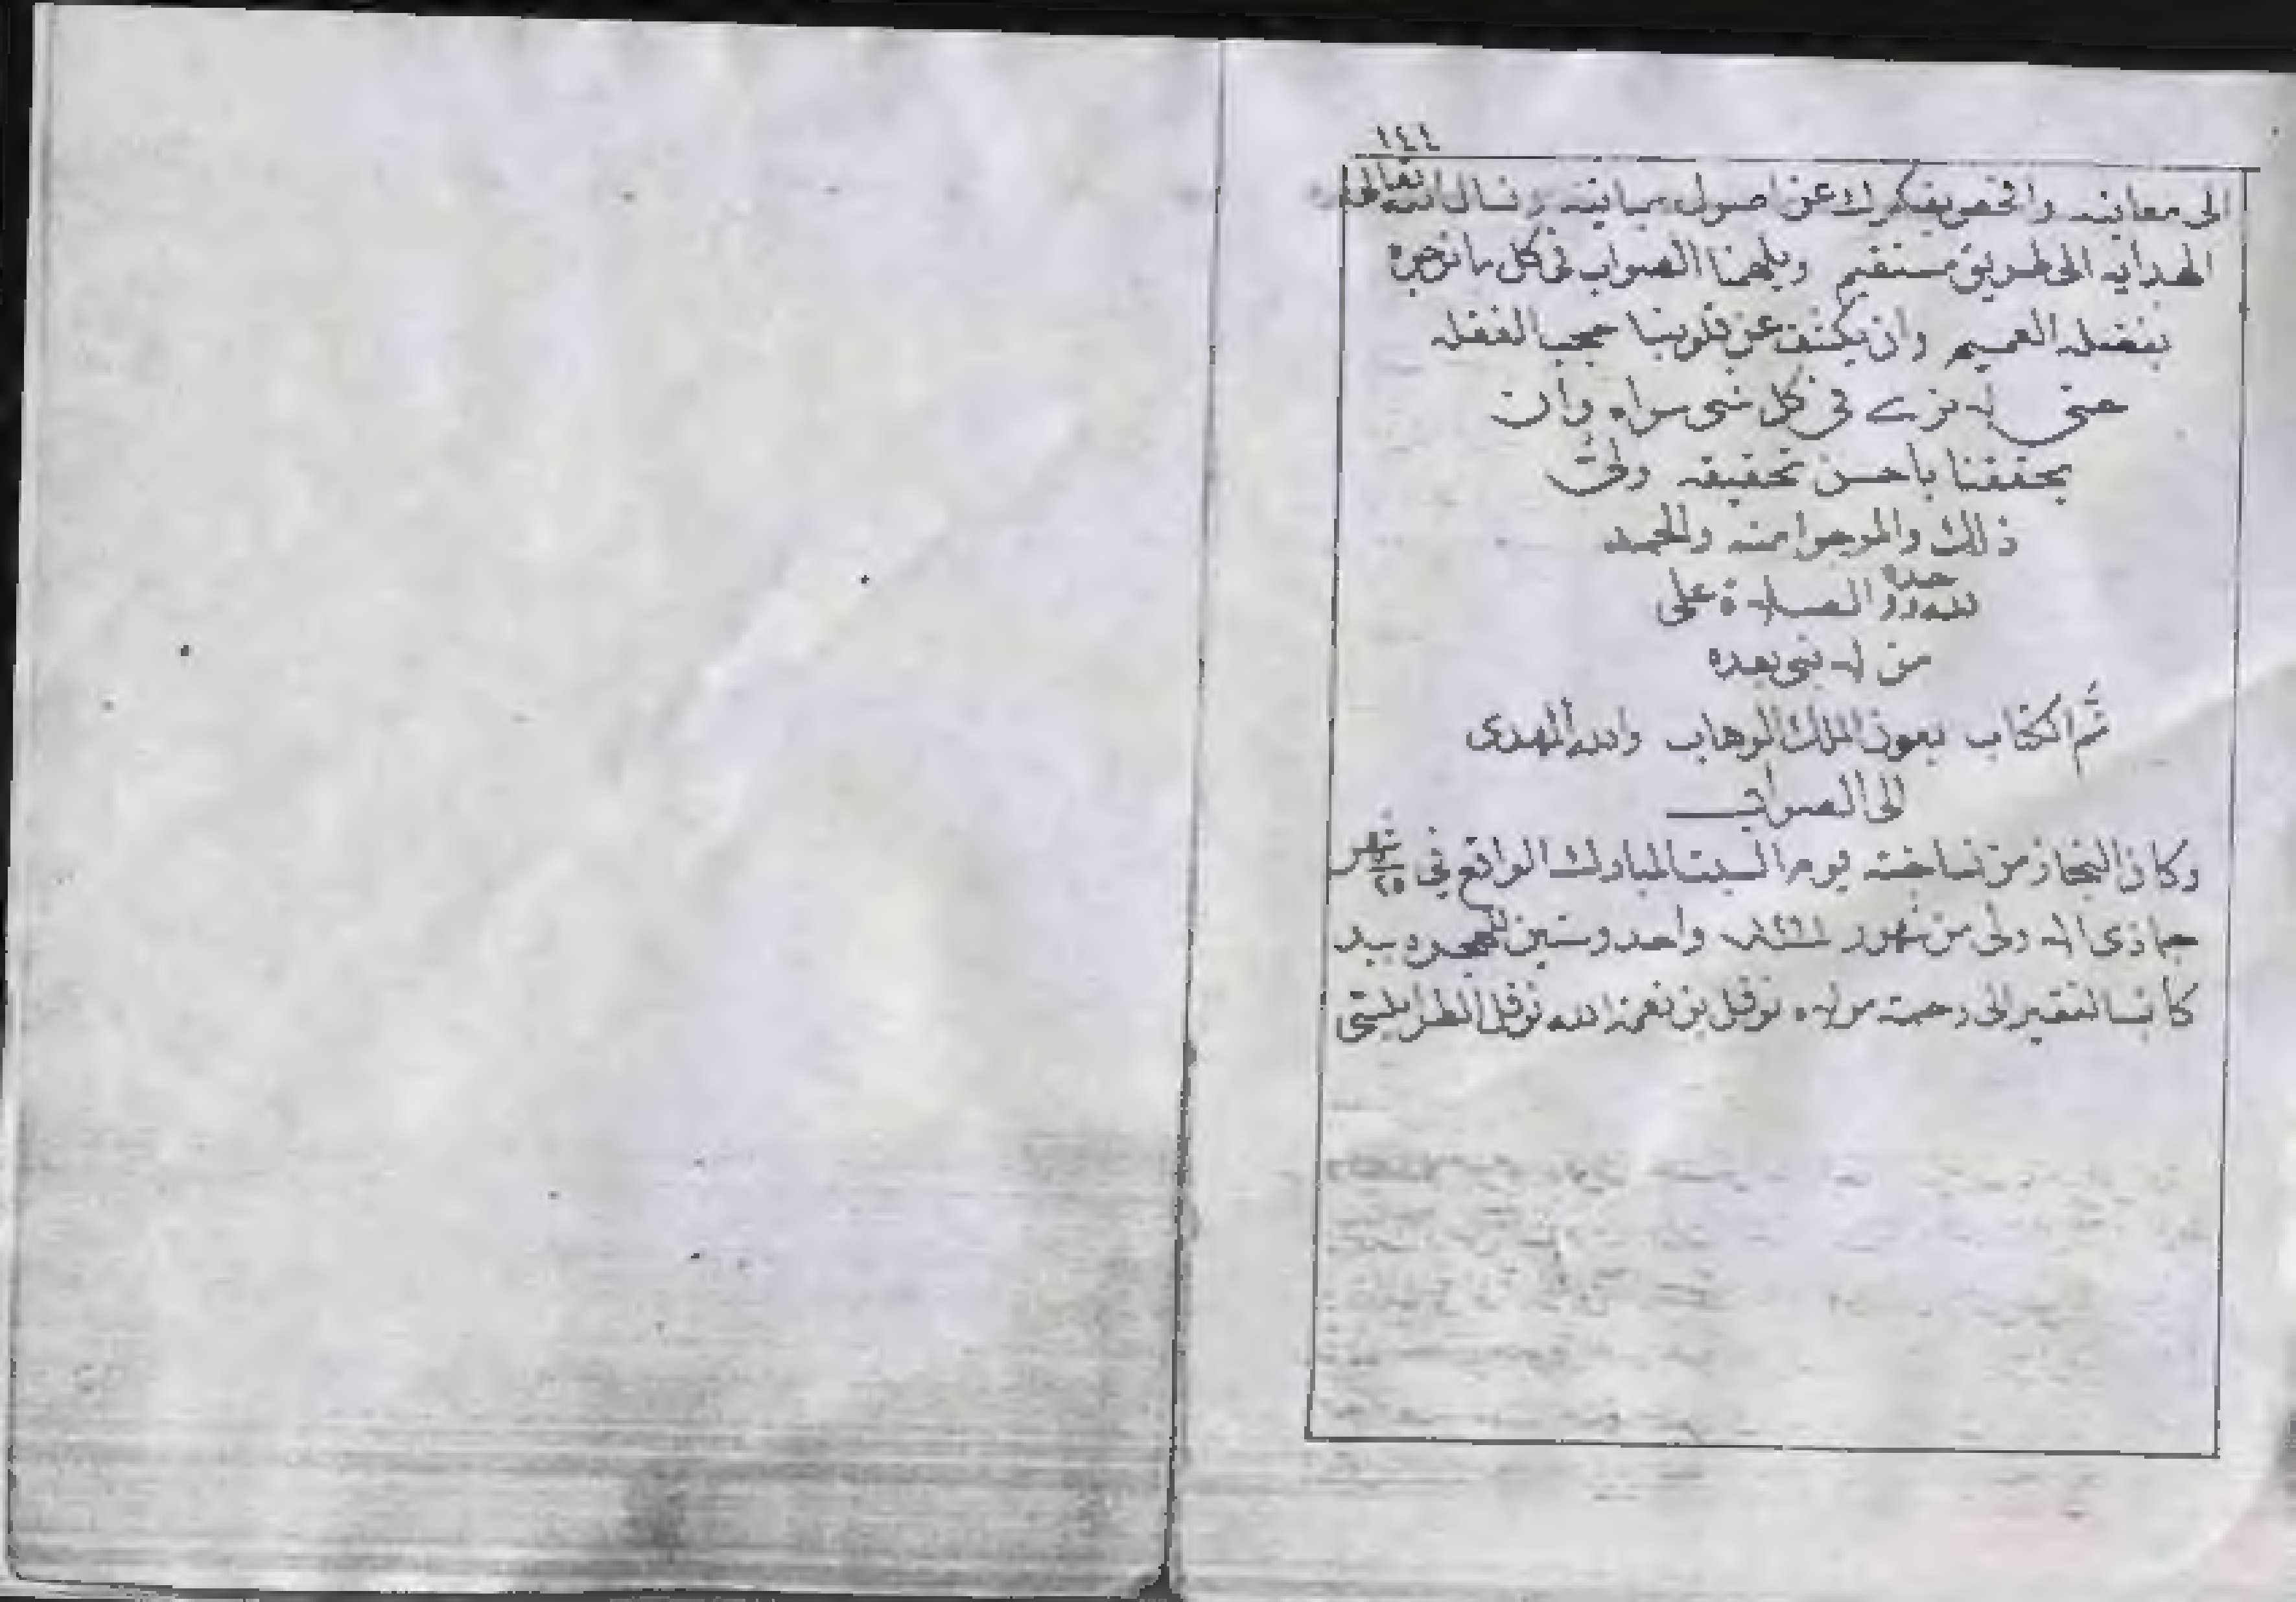 ١٤٤
الى معانيه وافحص بفكرك عن اصول مبانيه ونسال الله تعالى
الهدايه الى طريق مستقيم ويلهمنا الصواب فى كل ما نرجوه
بفضله العميم وان يكشف عن قلوبنا حجب الغفله
حتى لا نرى فى كل شى سواه وان
يحققنا باحسن تحقيقه ولى
ذلك والمرجوا منه والحمد
لله وحده والصلاة على
من لا نبى بعده
تم الكتاب بعون الملك الوهاب والله المهدى
الى الصواب
وكان النجاز من نساخته يوم السبت المبارك الواقع فى ٢٥ شهر
جماذى الاولى من شهور ١٢٦١ واحد وستين للهجره بيد
كاتبه الفقير الى رحمة مولاه نوفل بن نعمة الله نوفل الطرابلسى